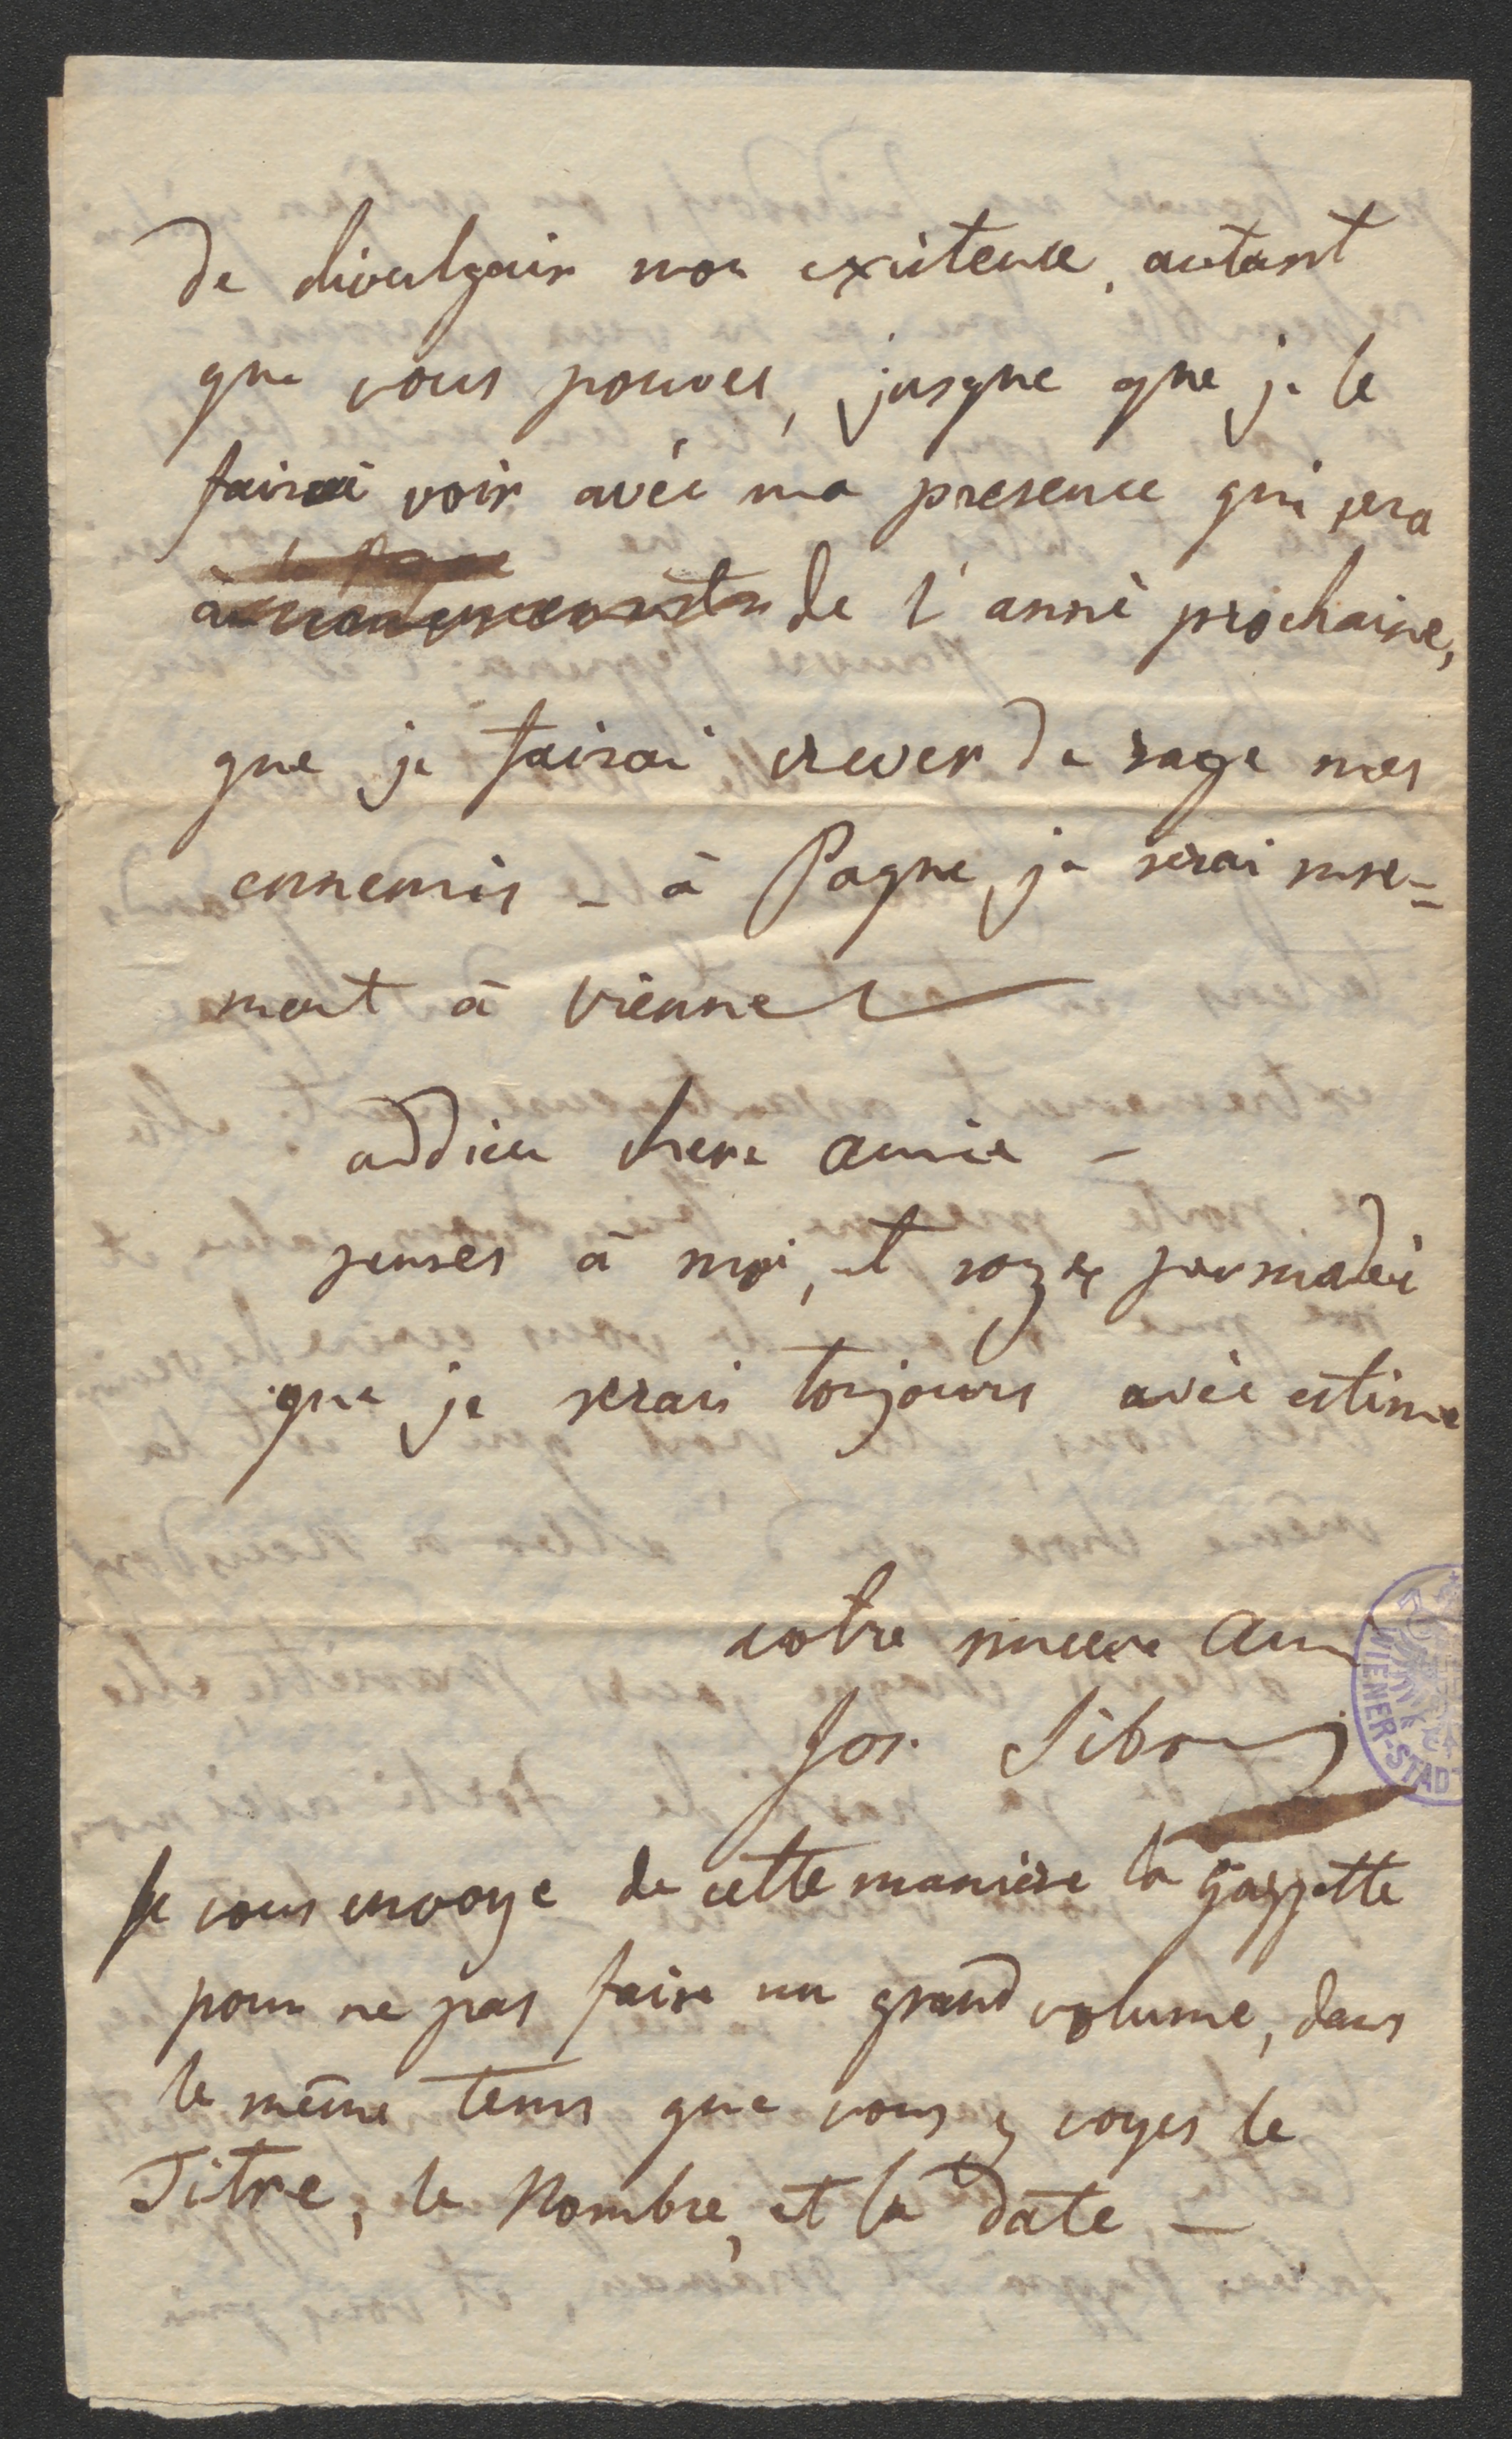 de divulgair mon existence, autant
que vous pouves, jusque que je le
fairai voir avèc ma presence qui sera
de l'annè prochaine,
que je fairai crever de rage mes
ennemis – à Paque, je serai sure-
ment à vienne
addieu chere amie –
penses à moi, et soyez persuadèè
que je serai toujours avèc estime
votre sincere ami
Jos.
WIENER-STADT
Je vous envoye de cette manière la gazzette
pour ne pas faire un grand volume, dans
le même tems que vous y voyes le
Titre, le Nombre, et la date –